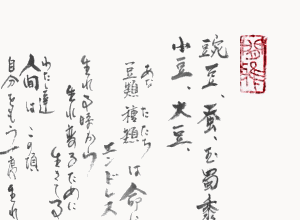 豌豆、蚕、玉蜀黍
小豆、大豆、
あなたたち
豆類種類は命に
エンドレス
生れる時から
生れ替るために
生きてる
わたし達
人間はこの頃
自分をもう一度生れ